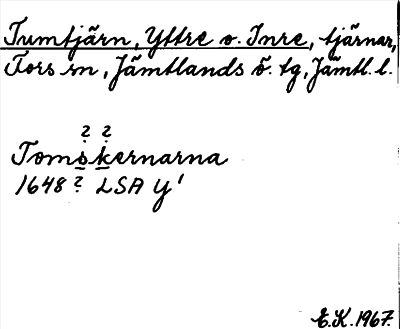 Tumtjärn, Yttre o. Inre, tjärnar,
Fors sn, Jämtlands ö. tg, Jämtl. l.
? ?
Tomskernarna
1648 ? LSA Y¹
E.K. 1967.